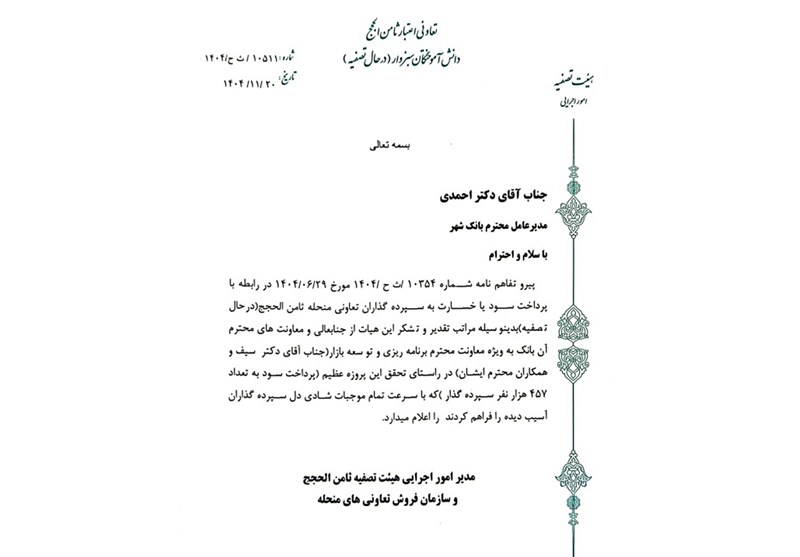 تعاونی اعتبار ثامن الحجج
دانش آموختگان سبزوار (در حال تصفیه)
شماره: ۱۰۵۱۱ / ث ح/ ۱۴۰۴
تاریخ: ۲۰ /۱۱/ ۱۴۰۴
هیئت تصفیه
امور اجرایی
بسمه تعالی
جناب آقای دکتر احمدی
مدیرعامل محترم بانک شهر
با سلام و احترام
پیرو تفاهم نامه شماره ۱۰۳۵۴ /ث ح /۱۴۰۴ مورخ ۱۴۰۴/۰۶/۲۹ در رابطه با
پرداخت سود یا خسارت به سپرده گذاران تعاونی منحله ثامن الحجج(درحال
تصفیه)بدینوسیله مراتب تقدیر و تشکر این هیات از جنابعالی و معاونت های محترم
آن بانک به ویژه معاونت محترم برنامه ریزی و توسعه بازار(جناب آقای دکتر سیف و
همکاران محترم ایشان) در راستای تحقق این پروژه عظیم (پرداخت سود به تعداد
۴۵۷ هزار نفر سپرده گذار )که با سرعت تمام موجبات شادی دل سپرده گذاران
آسیب دیده را فراهم کردند را اعلام میدارد.
مدیر امور اجرایی هیئت تصفیه ثامن الحجج
و سازمان فروش تعاونی های منحله